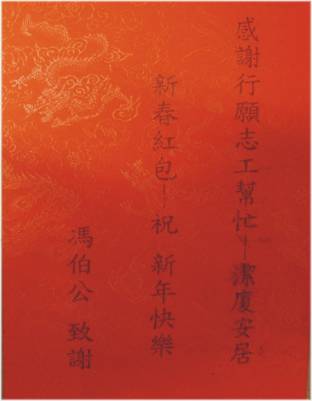 感謝行願志工幫忙－潔廈安居
新春紅包－祝 新年快樂
馮伯公 致謝